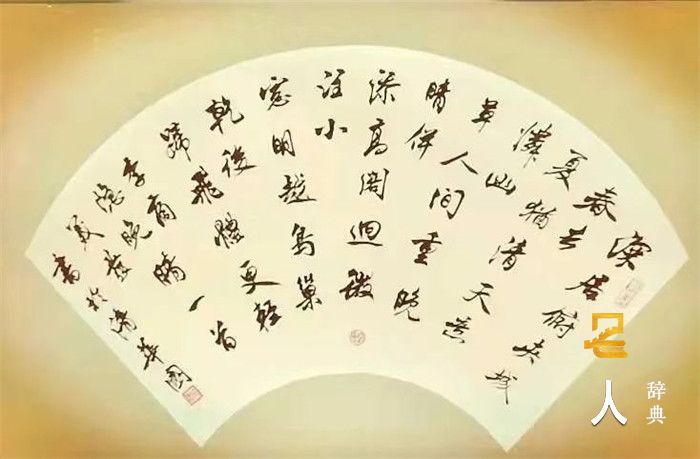 深居俯夾城
春去
夏猶清天意
憐幽
草人間重晚
晴併
添高閣迥微
注小
窗明越鳥巢
乾後
歸飛體更輕
李商
隱晚晴一首
書於清華園
名人
辞典